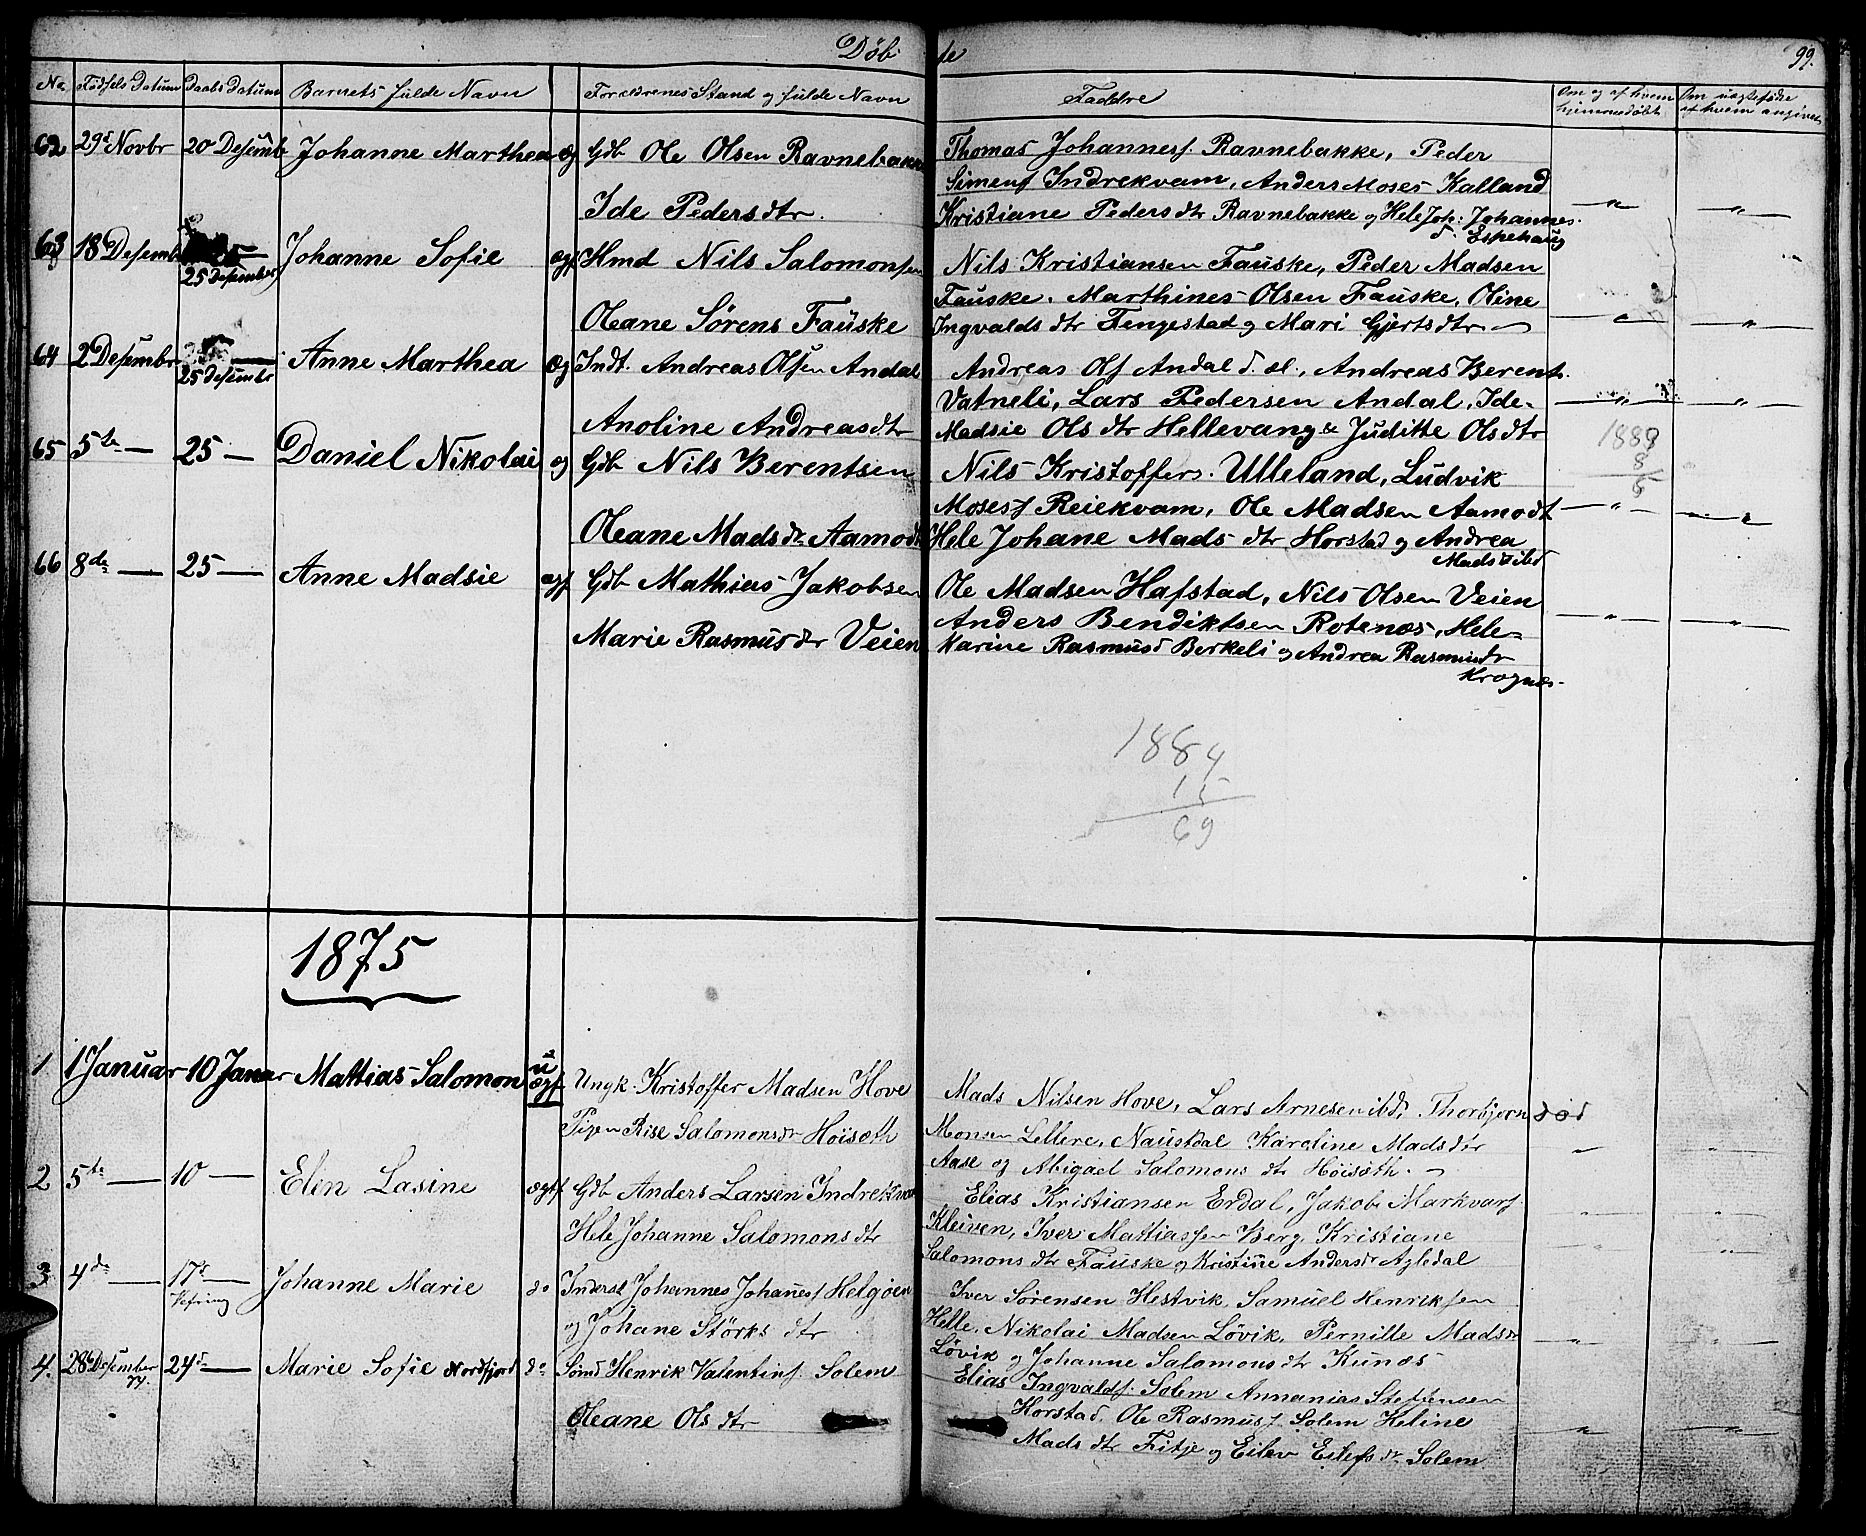 Døb
te
99.
No
Fødsels Datum
Daabs Datum
Barnets fulde Navn
Forældrenes Stand og fulde Navn
Faddre
Om og af hvem hjemmedøbt
Om uægtefødte af hvem angivet
62 29d Novbr 20 Desembr Johanne Marthea æg Gdb Ole Olsen Ravnebakke
Ide Pedersdtr.
Thomas Johanness. Ravnebakke, Peder
Simens Indrekvam, Anders Moses Kalland
Kristiane Pedersdtr Ravnebakke og Hele Joh: Johannes
d. Espehaug
63 18 Desembr 25 Desember Johanne Sofie ægt Hmd Nils Salomonsen
Oleane Sørens Fauske
Nils Kristiansen Fauske, Peder Madsen
Fauske. Marthines Olsen Fauske, Oline
Ingvalds dtr Tengestad og Mari Gjertsdtr
64 2 Desembr 25 Desembr Anne Marthea æg Indt. Andreas Olsen Andal
Anoline Andreasdtr
Andreas Ols Andal d. æl., Andreas Berents.
Vatneli, Lars Pedersen Andal, Ide-
Madsie Ols dtr Hellevang & Juditte Olsdtr
65 5te — 25 — Daniel Nikolai æg Gdb Nils Berentsen
Oleane Mads dtr Aamodt
Nils Kristoffers. Ulleland, Ludvik
Moses Reiekvam, Ole Madsen Aamodt
Hele Johane Mads dtr Horstad og Andrea
Mads d ibd
1889
8
6
66 8de — 25 — Anne Madsie ægt Gdb Mathias Jakobsen
Marie Rasmusdtr Veien
Ole Madsen Hafstad, Nils Olsen Veien
Anders Bendiktsen Rotenæs, Hele-
Karine Rasmusd Berkeli og Andrea Rasmusdtr
Krognæs.
1884
15
69
1875
1 1 Januar 10 Januar Mattias Salomon u ægt Ungk. Kristoffer Madsen Hove
Pigen Risе Salomonsdtr Höisæth
Mads Nilsen Hove, Lars Arnesen ibd, Thorbjørn død
Monsen Lellere, Naustdal Karoline Madsdtr
Aase og Abigael Salomons dtr Höisæth.
2 5te — 10 — Elen Lasine ægt Gdb Anders Larsen Indrekvam
Hele Johanne Salomons dtr
Elias Kristiansen Erdal, Jakob Markvars
Kleiven, Iver Mattiassen Berg, Kristiane
Salomons dtr Fauske og Kristine Andersdr Agledal
3 4de — 17d — Johanne Marie do Inderst Johannes Johanness Helgøen
Vefring
og Johane Störks dtr
Iver Sørensen Hestvik, Samuel Henriksen
Helle, Nikolai Madsen Lövik, Pernille Madsdr
Lövik og Johanne Salomons dtr Kunæs
4. 28de Desember 74. 24d — Marie Sofie Nordfjord do Smd Henrik Valentins. Solem
Oleane Ols dtr
Elias Ingvalds. Solem Annanias Steffensen
Horstad, Ole Rasmus. Solem Heline
Mads dtr Fitje og Eilev Eilefs dr Solem